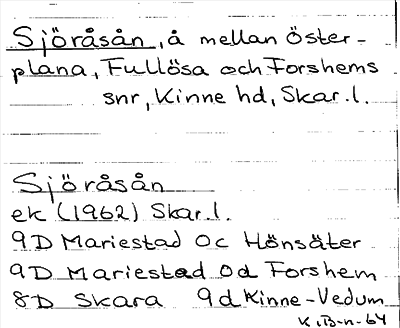 Sjöråsån, å mellan Öster-
plana, Fullösa och Forshems
snr, Kinne hd, Skar. l.
Sjöråsån
ek (1962) Skar. l.
9D Mariestad 0c Hönsäter
9D Mariestad 0d Forshem
8D Skara 9d Kinne-Vedum
K.B-n-64